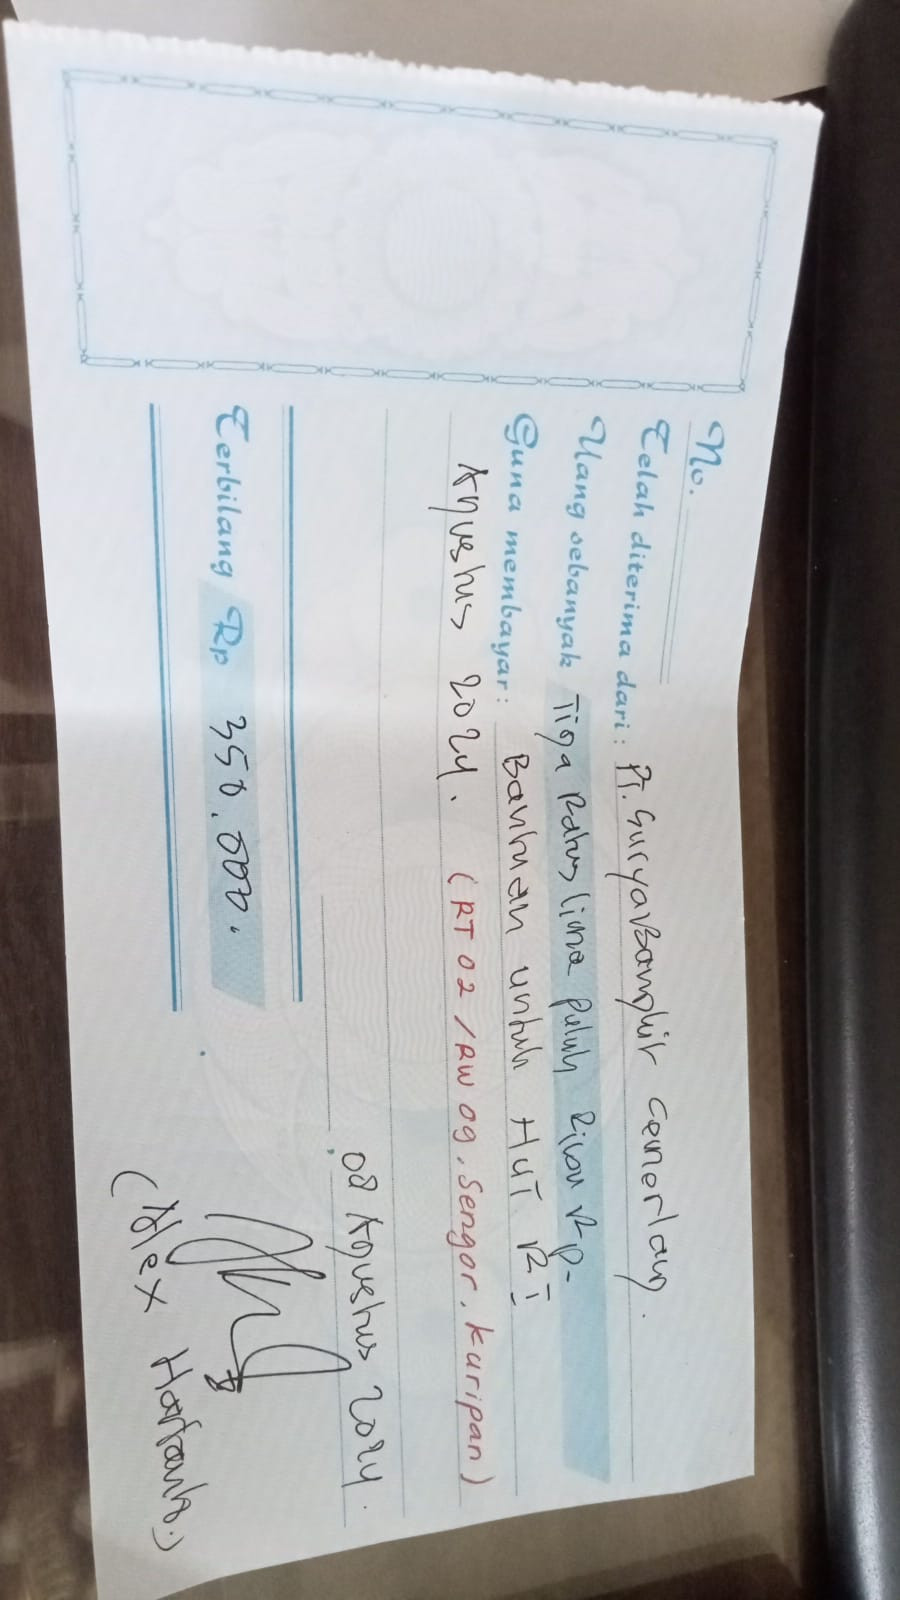 No.
Telah diterima dari: PT. Surya Bangkit Cemerlang.
Uang sebanyak Tiga Ratus lima puluh Ribu Rp-
Guna membayar: Bantuan untuk HUT RI
Agustus 2024. (RT 02 /RW 09, Sengor, Kuripan)
08 Agustus 2024.
Terbilang Rp 350.000.
(Alex Hartanto.)